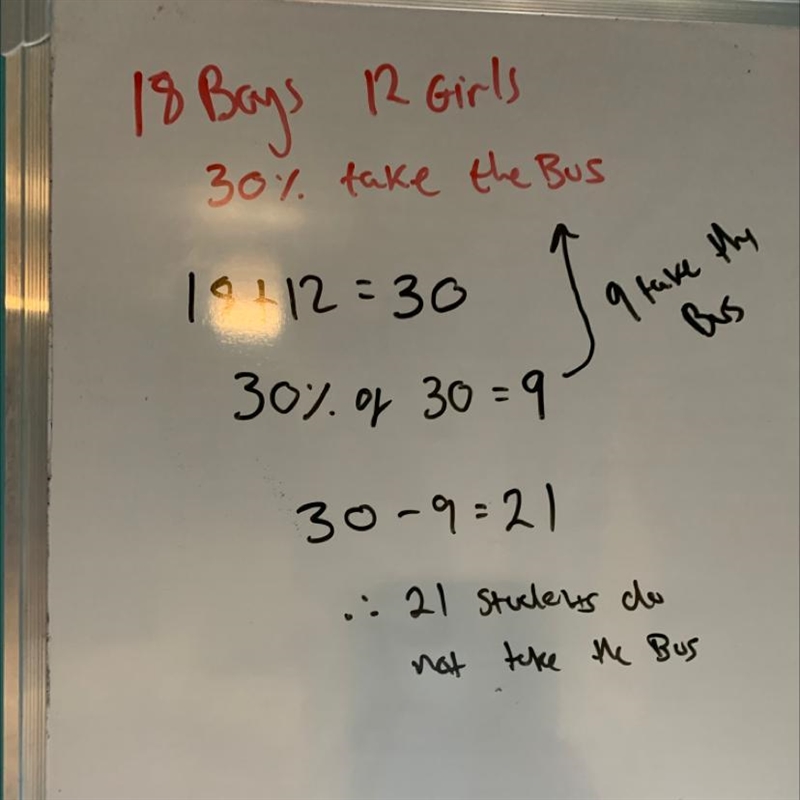 18 Boys 12 Girls
30% take the Bus
18+12 = 30
9 take the
Bus
30% of 30 = 9
30 - 9 = 21
∴ 21 students do
not take the Bus